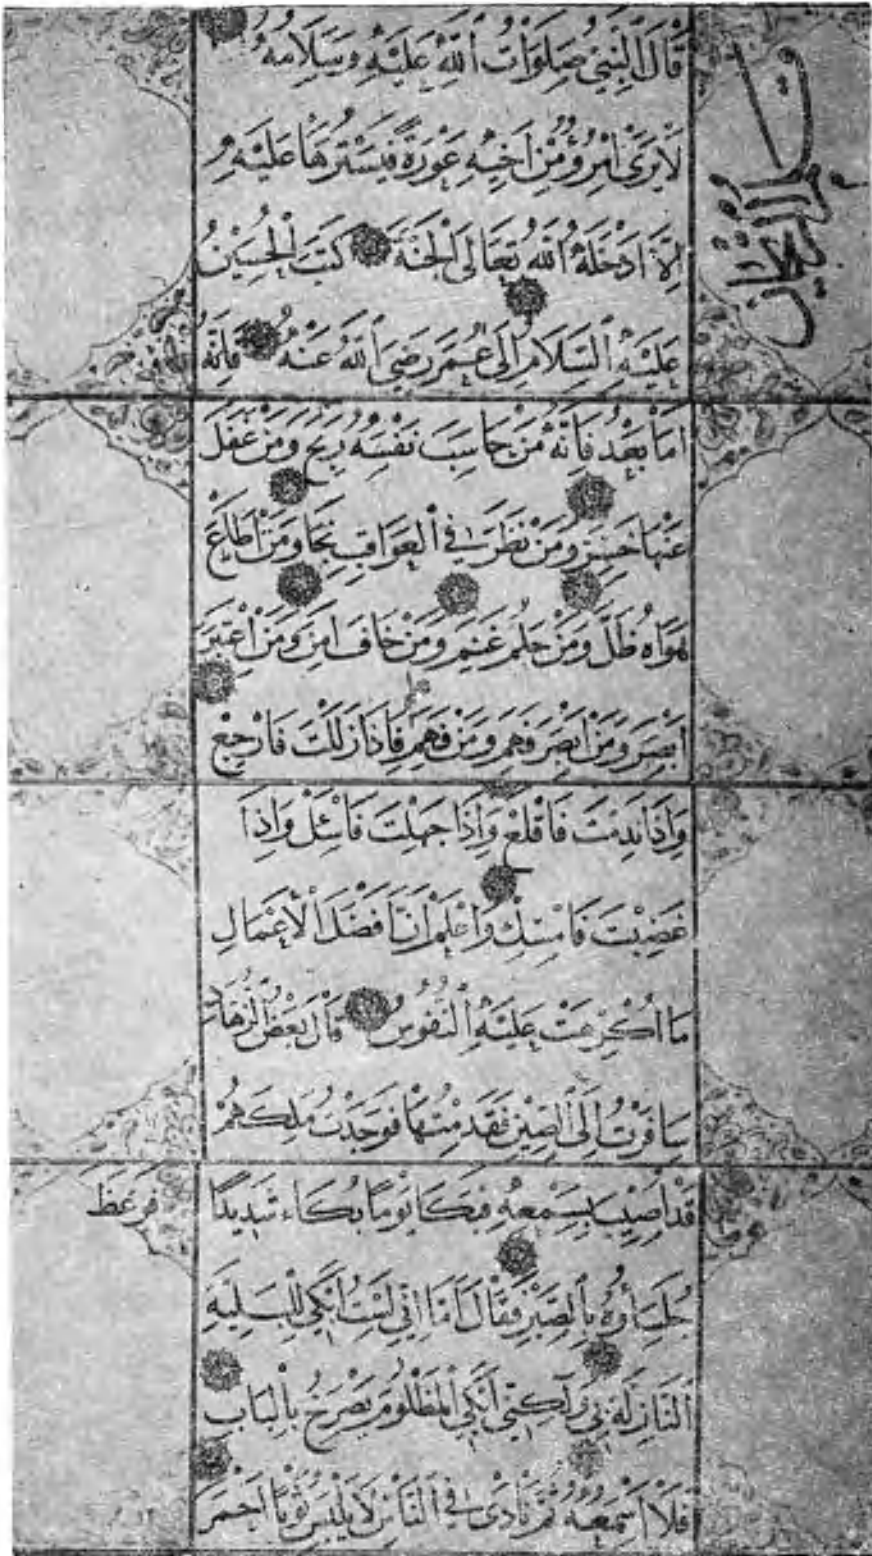 قَالَ النَّبِيُّ صَلَوَاتُ اللهِ عَلَيْهِ وَسَلَامُهُ
لَا يَرَى امْرُؤٌ مِنْ اَخِيهِ عَوْرَةً فَيَسْتُرُهَا عَلَيْهِ
اِلَّا اَدْخَلَهُ اللهُ تَعَالَى الْجَنَّةَ كَتَبَ الْحُسَيْنُ
عَلَيْهِ السَّلَامُ اِلَى عُمَرَ رَضِيَ اللهُ عَنْهُ فَاِنَّهُ
اَمَّا بَعْدُ فَاِنَّهُ مَنْ حَاسَبَ نَفْسَهُ رَبِحَ وَمَنْ غَفَلَ
عَنْهَا خَسِرَ وَمَنْ نَظَرَ فِي الْعَوَاقِبِ نَجَا وَمَنْ اَطَاعَ
هَوَاهُ ظَلَّ وَمَنْ حَلُمَ غَنِمَ وَمَنْ خَافَ اَمِنَ وَمَنِ اعْتَبَرَ
اَبْصَرَ وَمَنْ اَبْصَرَ فَهِمَ وَمَنْ فَهِمَ فَاِذَا زَلَلْتَ فَارْجِعْ
وَاِذَا نَدِمْتَ فَاقْلَعْ وَاِذَا جَهِلْتَ فَاسْئَلْ وَاِذَا
غَضِبْتَ فَامْسِكْ وَاعْلَمْ اَنَّ اَفْضَلَ الْاَعْمَالِ
مَا اُكْرِهَتْ عَلَيْهِ النُّفُوسُ قَالَ بَعْضُ الزُّهَّادِ
سَافَرْتُ اِلَى الصِّينِ فَقَدِمْتُهَا فَوَجَدْتُ مَلِكَهُمْ
قَدْ اُصِيبَ بِسَمْعِهِ فَبَكَا يَوْمًا بُكَاءً شَدِيدًا فَوَعَظَ
جُلَسَاؤُهُ بِالصَّبْرِ فَقَالَ اَمَا اِنِّي لَسْتُ اَبْكِي لِلْبَلِيَّةِ
النَّازِلَةِ بِي وَلَكِنِّي اَبْكِي لِمَظْلُومٍ يَصْرَخُ بِالْبَابِ
فَلَا اَسْمَعُهُ ثُمَّ نَادَى فِي النَّاسِ لَا يَلْبَسْ ثَوْبًا اَحْمَرَ